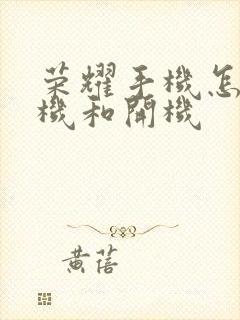 荣耀手機怎
機和開機
黄蓓